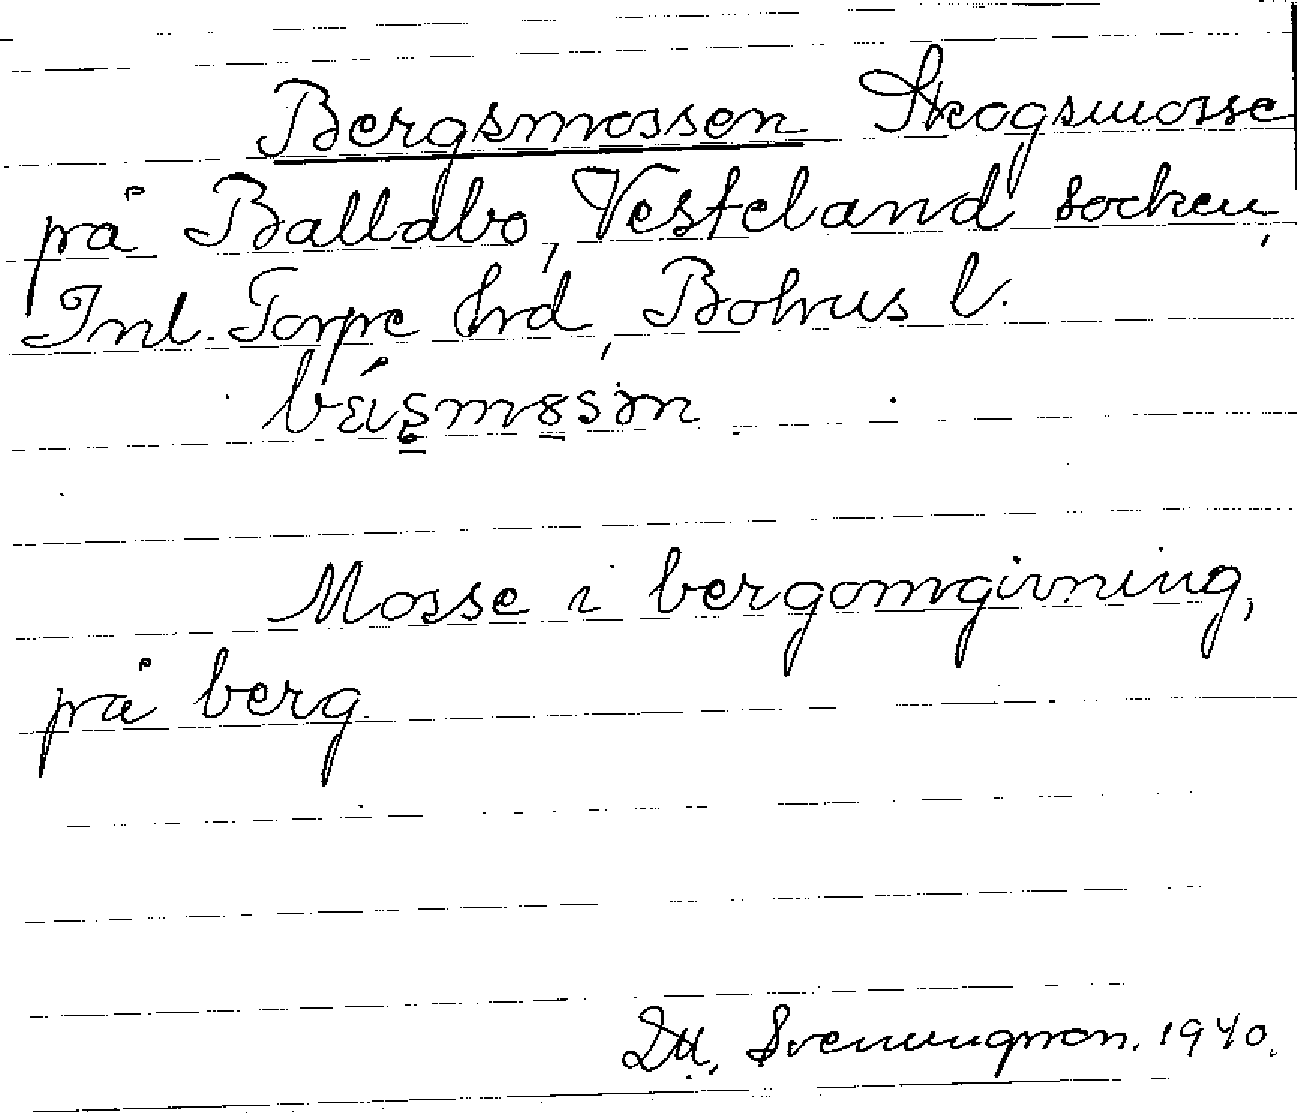 Bergsmossen Skogsmosse
på Balldbo, Vesteland socken,
Inl. Torpe hrd, Bohus l.
Mosse i bergomgivning,
på berg
D.H. Svenungsson. 1940.